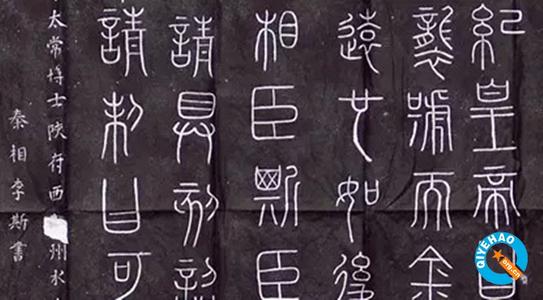 紀皇帝曰
襲號而金
遠也如後
相臣斯臣
請具刻詔
請制曰可
太常博士陝府西州水
秦相李斯書
QIYEHAO
org.cn